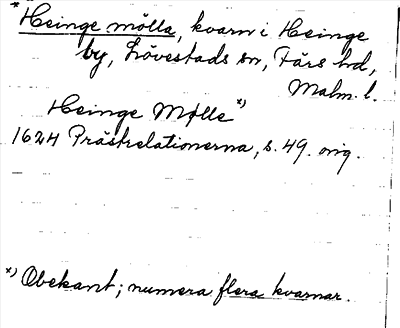 * Heinge mölla, kvarn i Heinge
by, Lövestads sn, Färs hd,
Malm. l.
Heinge Mølle *)
1624 Prästrelationerna, s. 49. orig.
*) Obekant; numera flera kvarnar.